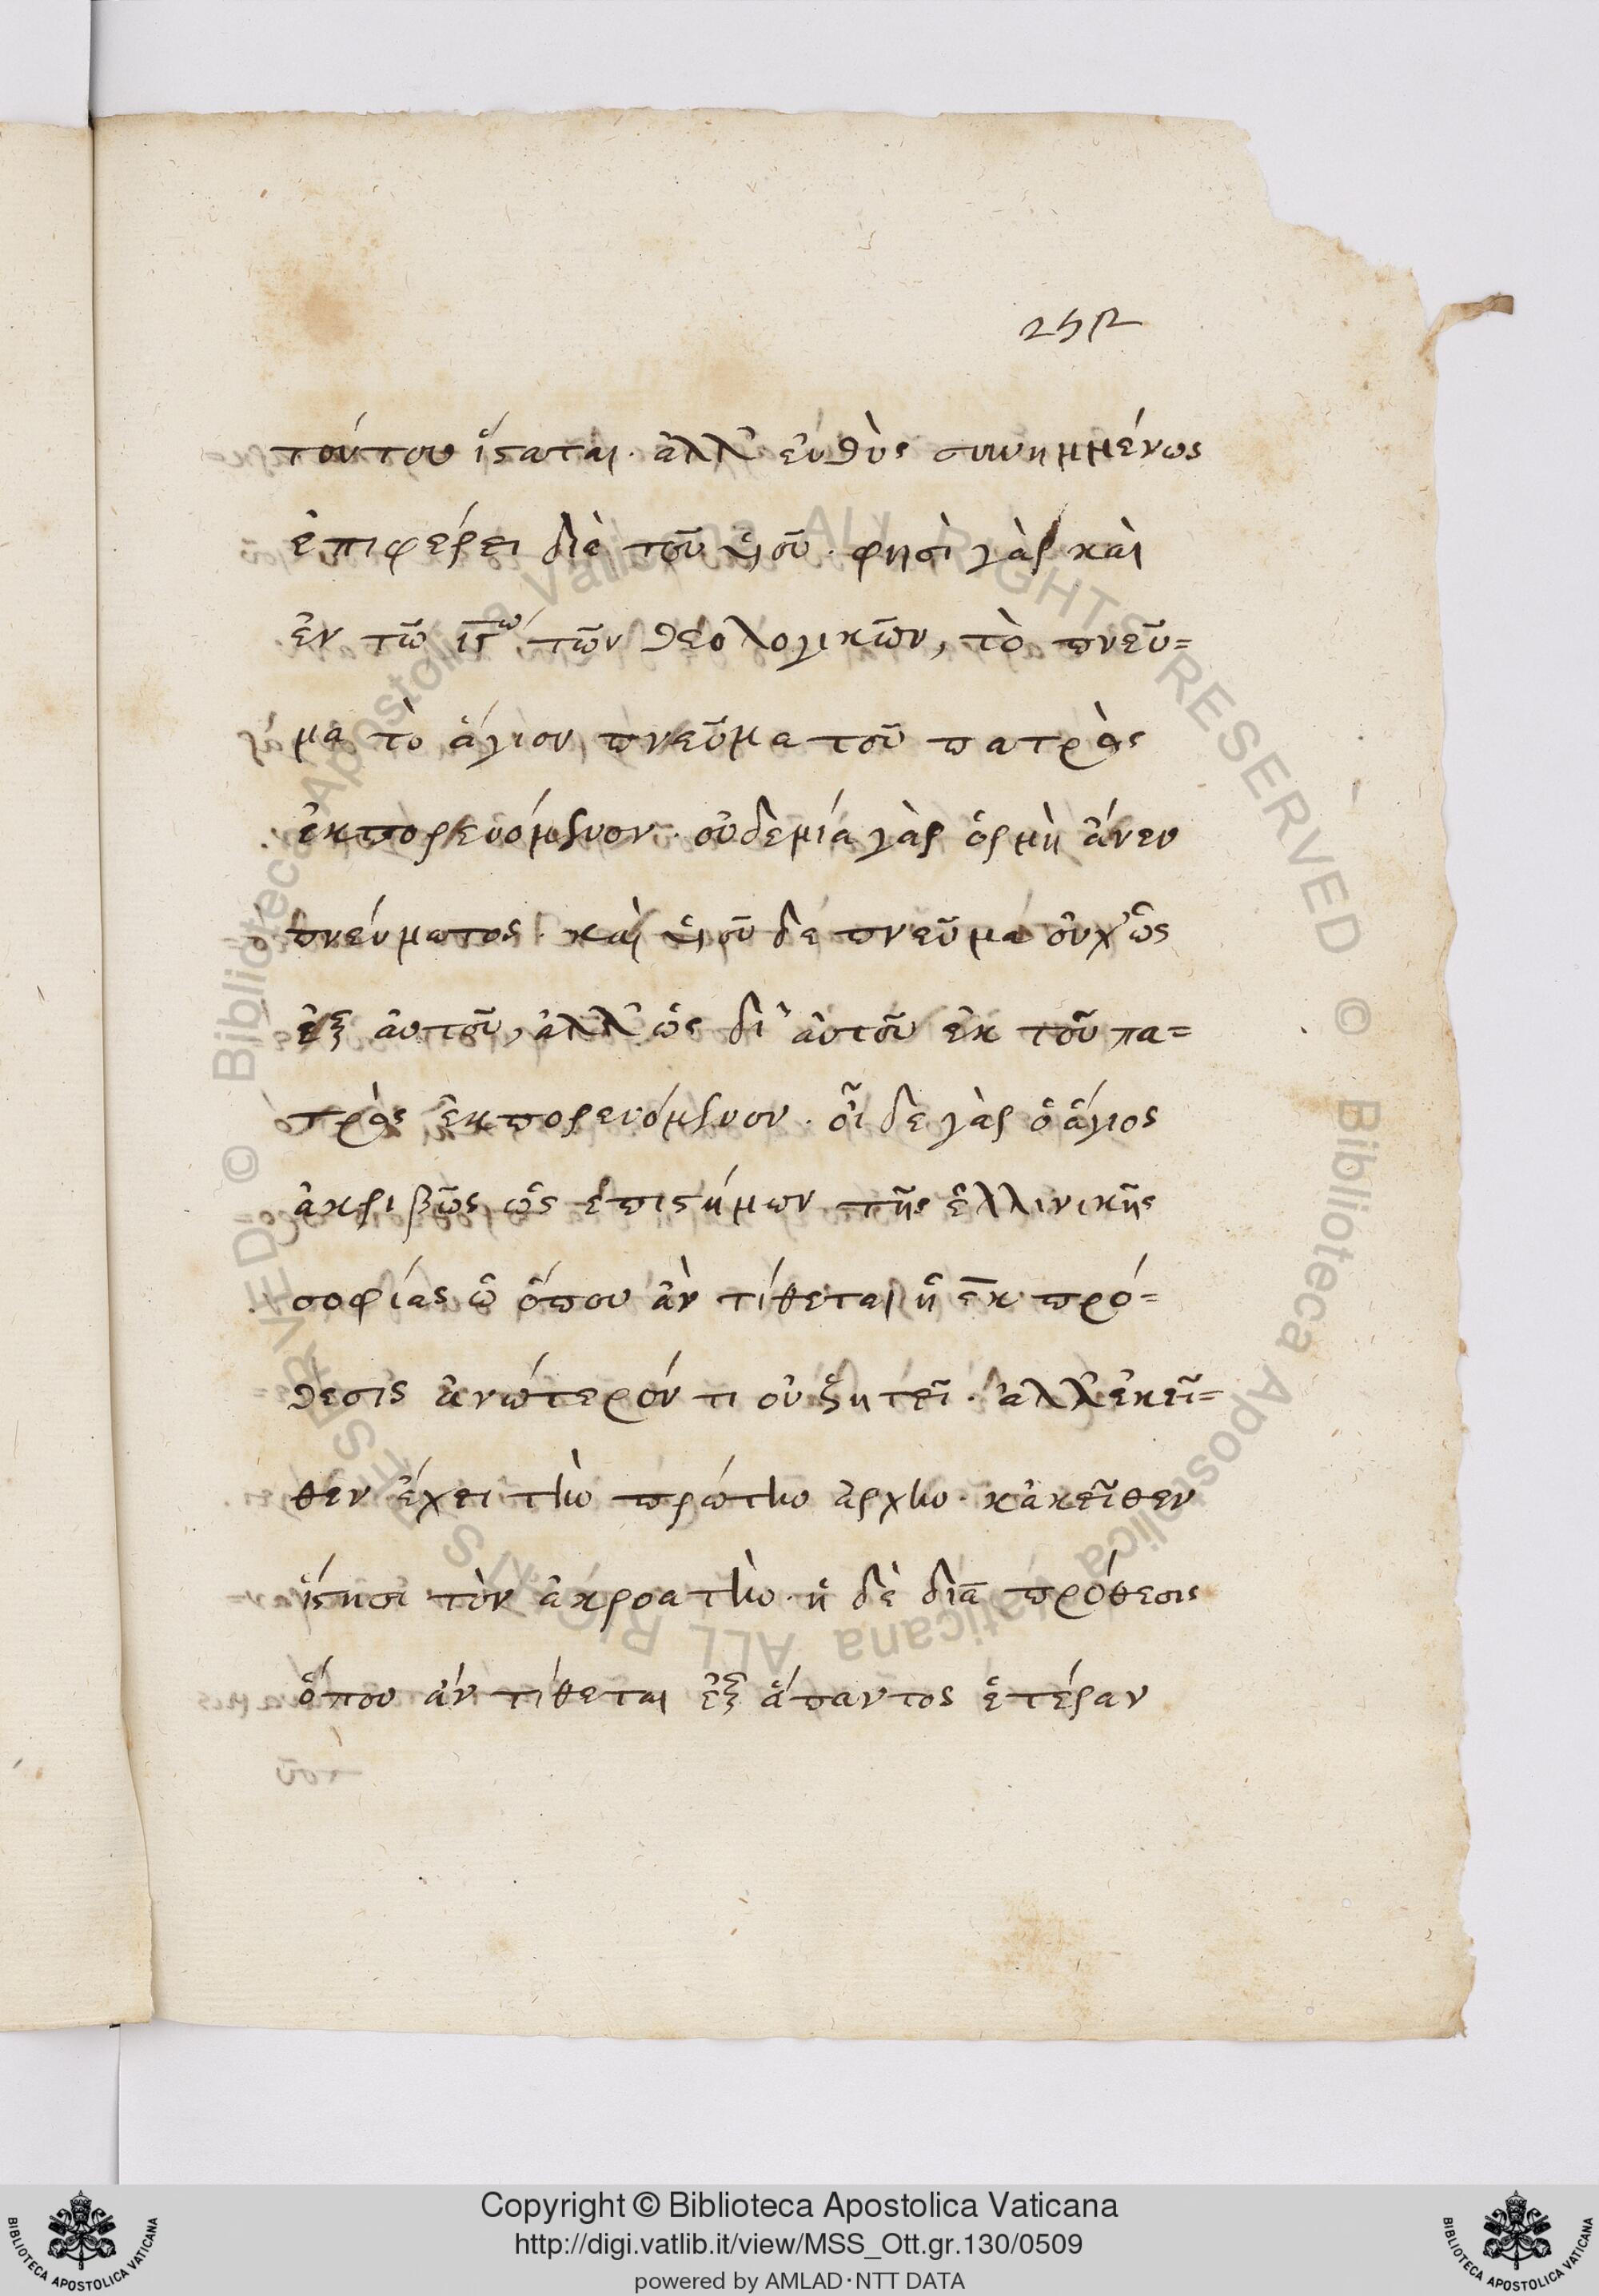 252
τούτου ἵσταται· ἀλλ' εὐθὺς συνημμένως
ἐπιφέρει διὰ τοῦ υἱοῦ· φησὶ γὰρ καὶ
ἐν τῶ ιγω τῶν θεολογικῶν, τὸ πνεῦ=
μα τὸ ἅγιον πνεῦμα τοῦ πατρὸς
ἐκπορευόμενον· οὐδεμία γὰρ ὁρμὴ ἄνευ
πνεύματος· καὶ υἱοῦ δὲ πνεῦμα οὐχ' ὡς
ἐξ αὐτοῦ, ἀλλ' ὡς δι' αὐτοῦ ἐκ τοῦ πα=
τρὸς ἐκπορευόμενον· οἶδε γὰρ ὁ ἅγιος
ἀκριβῶς ὡς ἐπιστήμων τῆς ἑλλινικῆς
σοφίας ὦ ὅπου ἂν τίθεται ἡ ἐκ πρό=
θεσις ἀνώτερόν τι οὐ ζητεῖ· ἀλλ' ἐκεῖ=
θεν ἔχει τὴν πρώτην ἀρχὴν· κἀκεῖθεν
ἵστησι τὸν ἀκροατὴν· ἡ δὲ διὰ πρόθεσις
ὅπου ἂν τίθεται ἐξ ἅπαντος ἑτέραν
Copyright © Biblioteca Apostolica Vaticana
http://digi.vatlib.it/view/MSS_Ott.gr.130/0509
powered by AMLAD·NTT DATA
BIBLIOTECA APOSTOLICA VATICANA
BIBLIOTECA APOSTOLICA VATICANA
© Biblioteca Apostolica Vaticana ALL RIGHTS RESERVED © Biblioteca Apostolica Vaticana ALL RIGHTS RESERVED